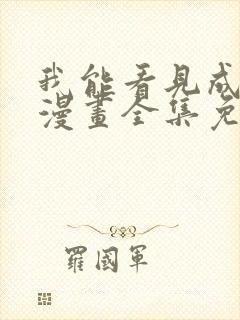 我能看見成
漫畫全集免
羅國軍